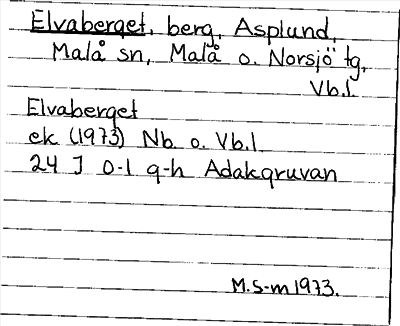 Elvaberget, berg, Asplund,
Malå sn, Malå o. Norsjö tg,
Vb.l.
Elvaberget
ek (1973) Nb. o. Vb.l.
24 J 0-1 g-h Adakgruvan
M.S-m 1973.